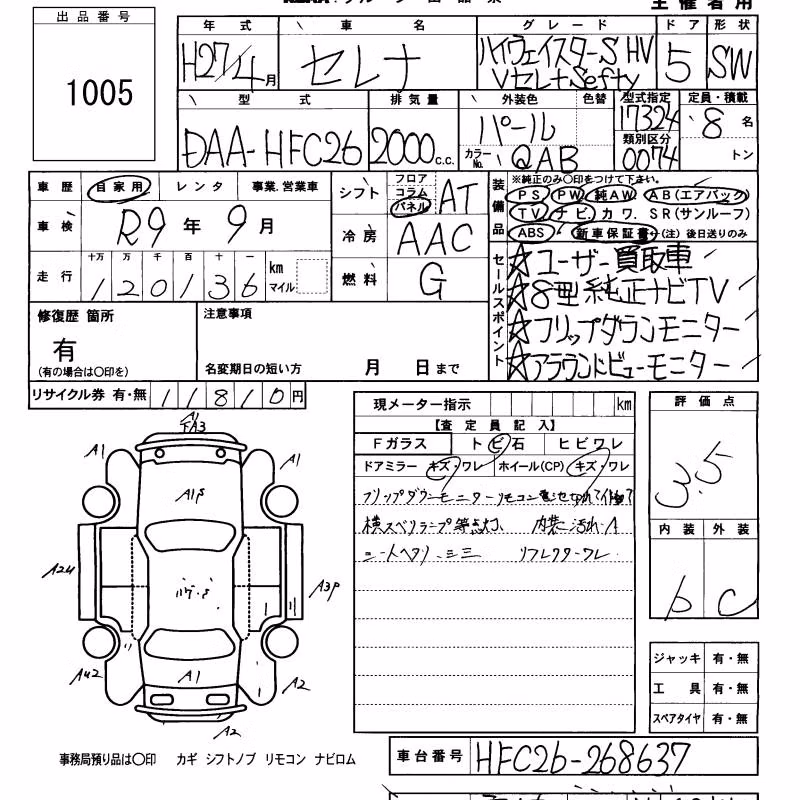 主催者用
出品番号
1005
年式 車名 グレード ドア 形状
H27/4月 セレナ ハイウェイスターS HV 5 SW
VセレナSefty
型式 排気量 外装色 色替 型式指定 定員・積載
17324 8名
DAA-HFC26 2000c.c. パール 類別区分
カラーNo. QAB 0074 トン
車歴 自家用 レンタ 事業.営業車
車検 R9年9月
走行 十万 万 千 百 十 一
120136 km マイル
シフト フロア コラム パネル AT
冷房 AAC
燃料 G
装備品 ※純正のみ〇印をつけて下さい。
PS PW 純AW AB(エアバック)
TV ナビ カワ SR(サンルーフ)
ABS 新車保証書 (注)後日送りのみ
セールスポイント
☆ユーザー買取車
☆8型純正ナビTV
☆フリップダウンモニター
☆アラウンドビューモニター
修復歴 箇所
有
(有の場合は〇印を)
注意事項
名変期日の短い方 月 日まで
リサイクル券 有・無 11810円
A1
下A3
A1 A1
A1P
A24 A3P
A42 A1 A2
A2
事務局預り品は〇印 カギ シフトノブ リモコン ナビロム
現メーター指示 km
【査定員記入】
Fガラス トビ石 ヒビワレ
ドアミラー キズ・ワレ ホイール(CP) キズ・ワレ
フリップダウンモニターリモコン
横スベリランプ等点灯、 内装に汚れ
シートヘタリ リフレクターワレ
評価点
3.5
内装 外装
b C
ジャッキ 有・無
工具 有・無
スペアタイヤ 有・無
車台番号 HFC26-268637